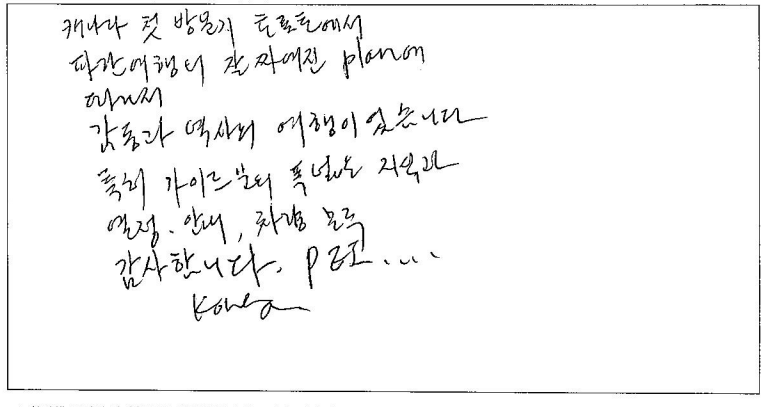 캐나다 첫 방문지 토론토에서
파란여행의 잘 짜여진 plan에
따라서
감동과 역사의 여행이었습니다
특히 가이드분의 폭넓은 지식과
열정. 안내, 차량 모두
감사합니다. PEI....
Korea